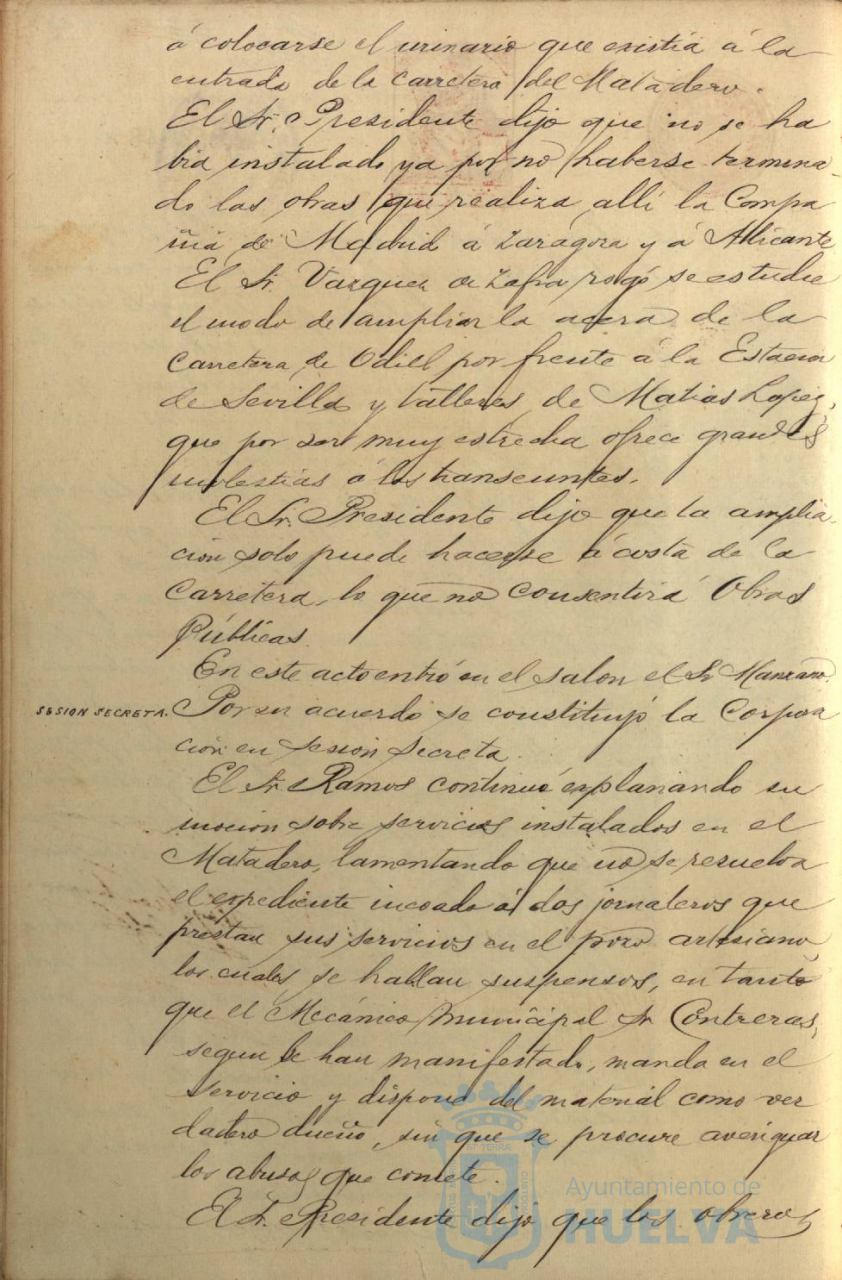 á colocarse el urinario que existía á la
entrada de la carretera del Matadero.
El Sr. Presidente dijo que no se ha
bia instalado ya por no haberse termina-
do las obras que realiza allí la Compa
ñia de Madrid á Zaragoza y á Alicante
El Sr. Vazquez de Zafra rogó se estudie
el modo de ampliar la acera de la
Carretera de Odiel por frente á la Estacion
de Sevilla y talleres de Matias Lopez,
que por ser muy estrecha ofrece grandes
molestias á los transeuntes.
El Sr. Presidente dijo que la amplia-
ción solo puede hacerse á costa de la
Carretera, lo que no consentirá Obras
Públicas.
En este acto entró en el salon el Sr Manzano.
SESION SECRETA.
Por su acuerdo se constituyó la Corpora
ción en sesion secreta.
El Sr. Ramos continuó explanando su
mocion sobre servicios instalados en el
Matadero, lamentando que no se resuelva
el expediente incoado á dos jornaleros que
prestan sus servicios en el pozo artesiano,
los cuales se hallan suspensos, en tanto
que el Mecánico municipal Sr Contreras,
segun le han manifestado, manda en el
servicio y dispone del material como ver
dadero dueño, sin que se procure averiguar
los abusos que comete.
El Sr. Presidente dijo que los obreros
Ayuntamiento de
HUELVA